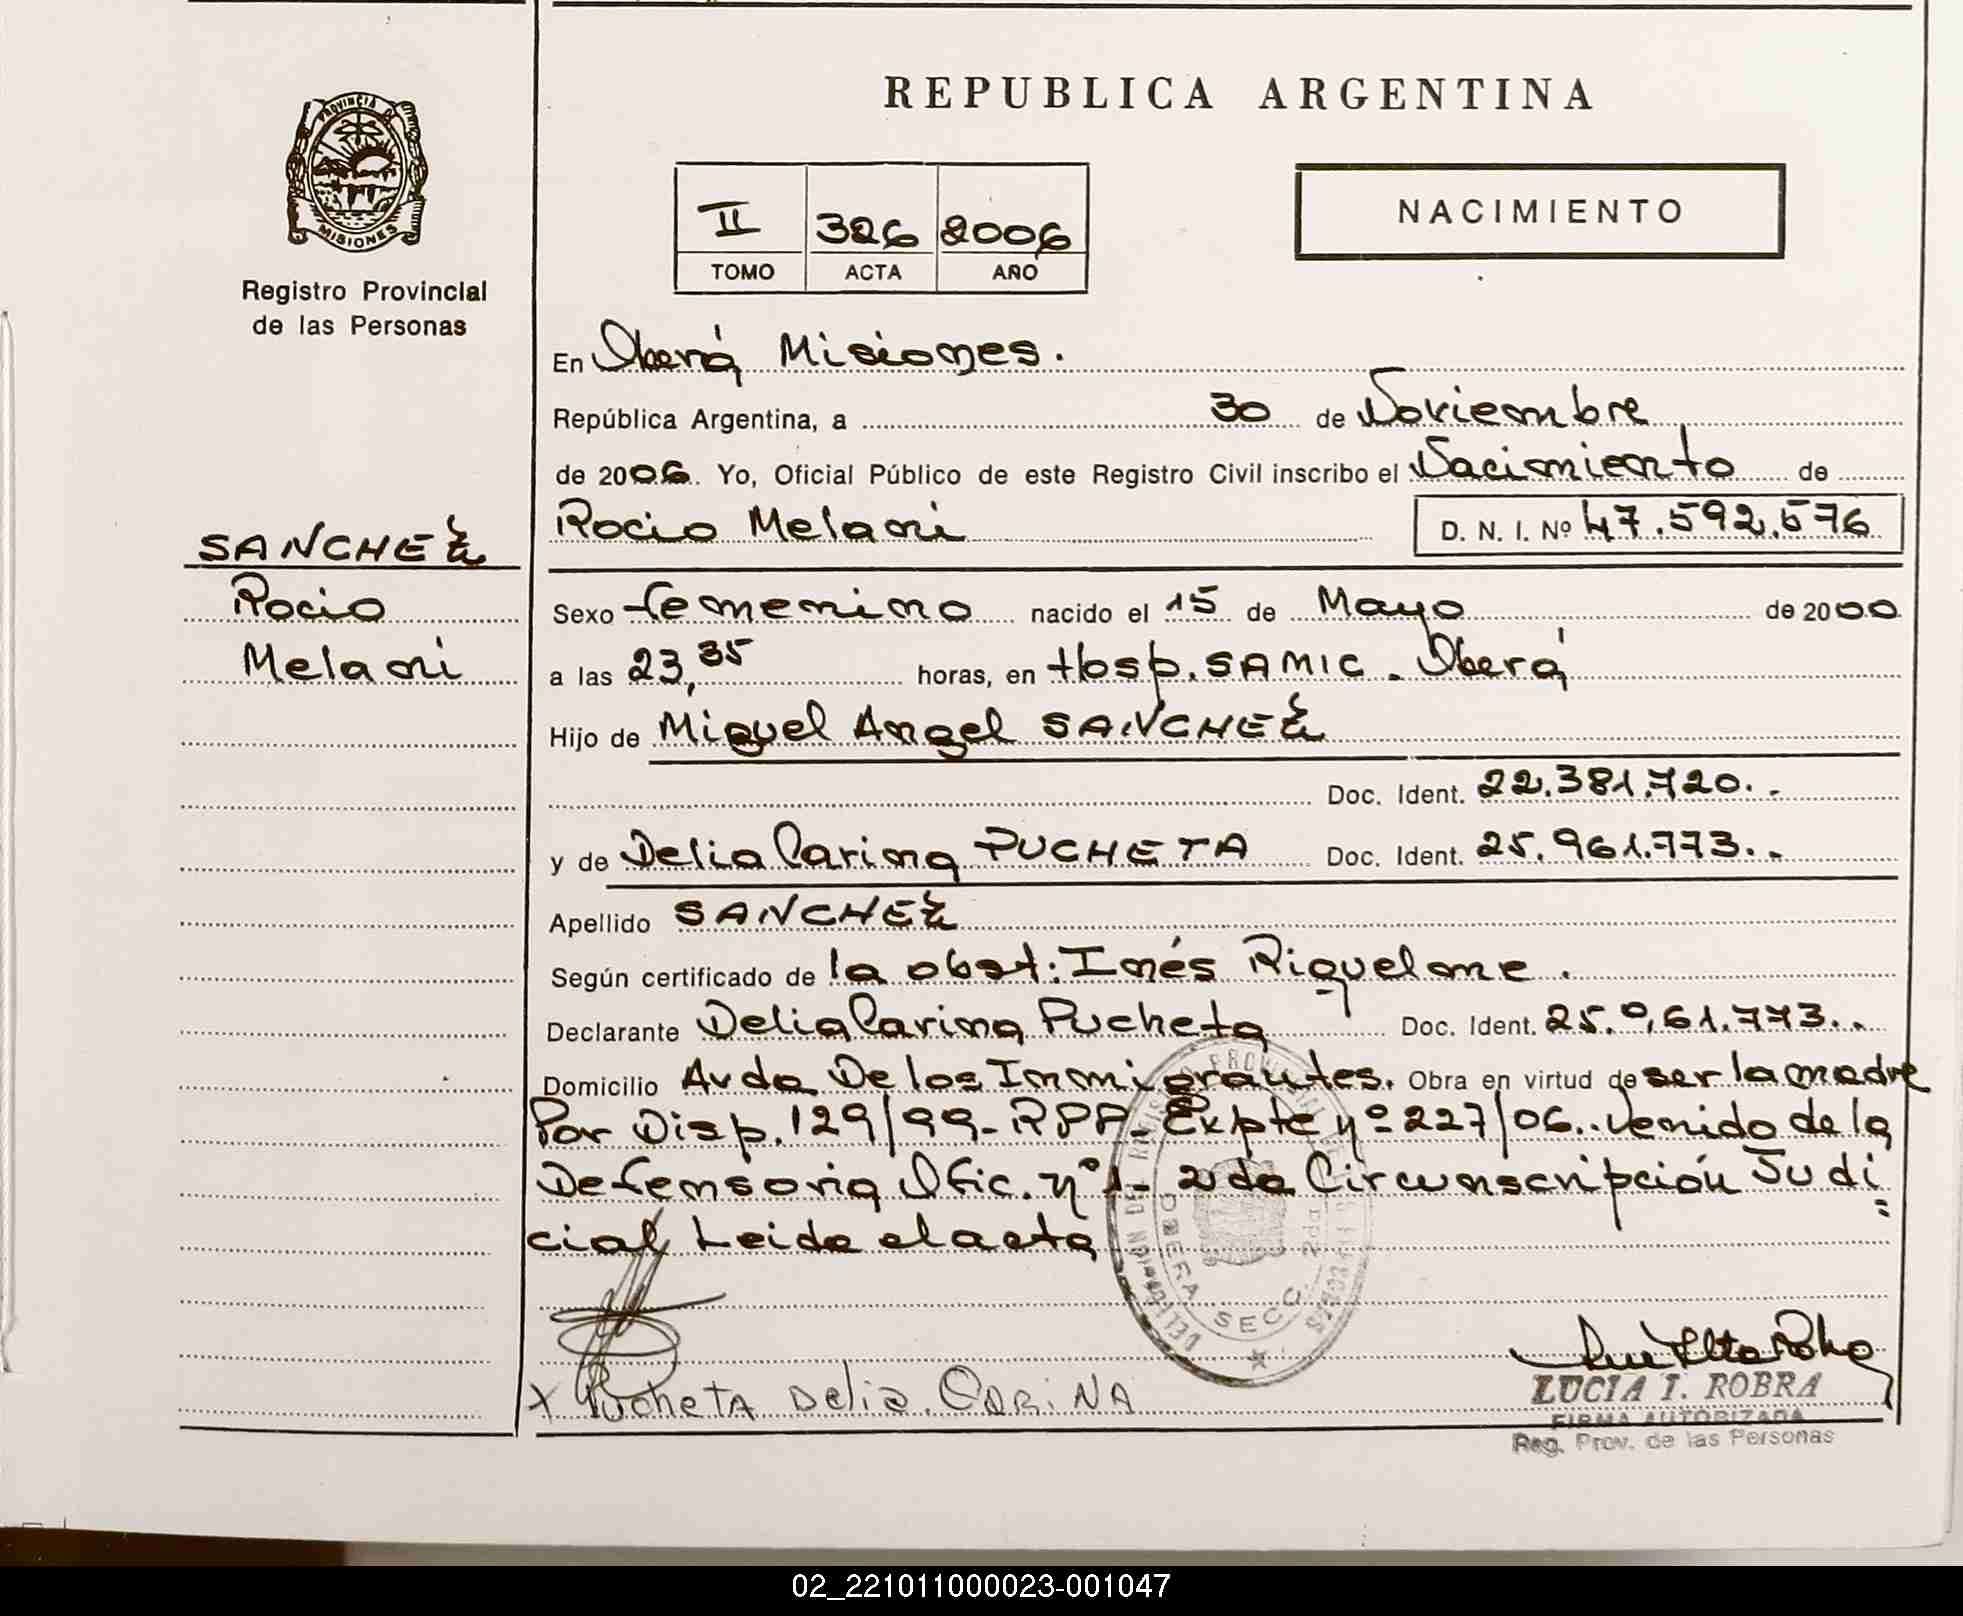 REPUBLICA ARGENTINA
PROVINCIA DE
MISIONES
Registro Provincial
de las Personas
II 326 2006
TOMO ACTA AÑO
NACIMIENTO
En Oberá Misiones.
República Argentina, a 30 de Noviembre
de 2006. Yo, Oficial Público de este Registro Civil inscribo el Nacimiento de
Rocio Melani D. N. I. Nº 47.592.576
SANCHEZ
Rocio
Melani
Sexo femenino nacido el 15 de Mayo de 2000
a las 23,35 horas, en Hosp. SAMIC. Oberá
Hijo de Miguel Angel SANCHEZ
Doc. Ident. 22.381.720..
y de Delia Carina PUCHETA Doc. Ident. 25.961.773..
Apellido SANCHEZ
Según certificado de la obst: Inés Riquelme.
Declarante Delia Carina Pucheta Doc. Ident. 25.961.773..
Domicilio Avda De los Inmigrantes. Obra en virtud de ser la madre
Por Disp. 129/99-RPP. Expte nº 227/06.. venido de la
Defensoria Ofic. nº 1- 2da Circunscripción Judi=
cial Leida el acta
OBERA SECC. 2da
Pucheta Delia. CARiNA
LUCIA I. ROBRA
FIRMA AUTORIZADA
Reg. Prov. de las Personas
02_221011000023-001047